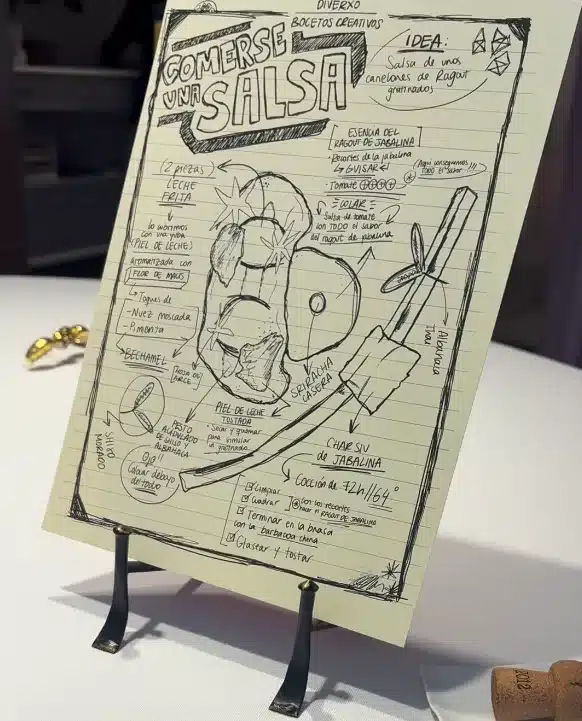 DIVERXO
BOCETOS CREATIVOS
COMERSE
UNA
SALSA
IDEA:
Salsa de unos
canelones de Ragout
gratinados
ESENCIA DEL
RAGOUT DE JABALINA
· Recortes de la jabalina
↳ GUISAR ↵
· Tomate
Aquí conseguimos
TODO el sabor !!!
COLAR
Salsa de tomate
con TODO el sabor
del ragout de jabalina
(2 piezas)
LECHE
FRITA
lo cubrimos
con una yuba
(PIEL DE LECHE)
aromatizada con
FLOR DE MAÍZ
↳ Toques de
- Nuez moscada
- Pimienta
BECHAMEL
SHISO
MORADO
PESTO
DE SHISO Y
ALBAHACA
Ojo!!
Colocar debajo
del todo
PIEL DE LECHE
TOSTADA
· Secar y quemar
para simular
el gratinado
SRIRACHA
CASERA
Albahaca
Thai
CHAR SIU
DE JABALINA
Cocción de 72h//64°
Limpiar
Cuadrar
Con los recortes
hacer el RAGOUT DE JABALINA
Terminar en la brasa
con la barbacoa china
Glasear y tostar
2012